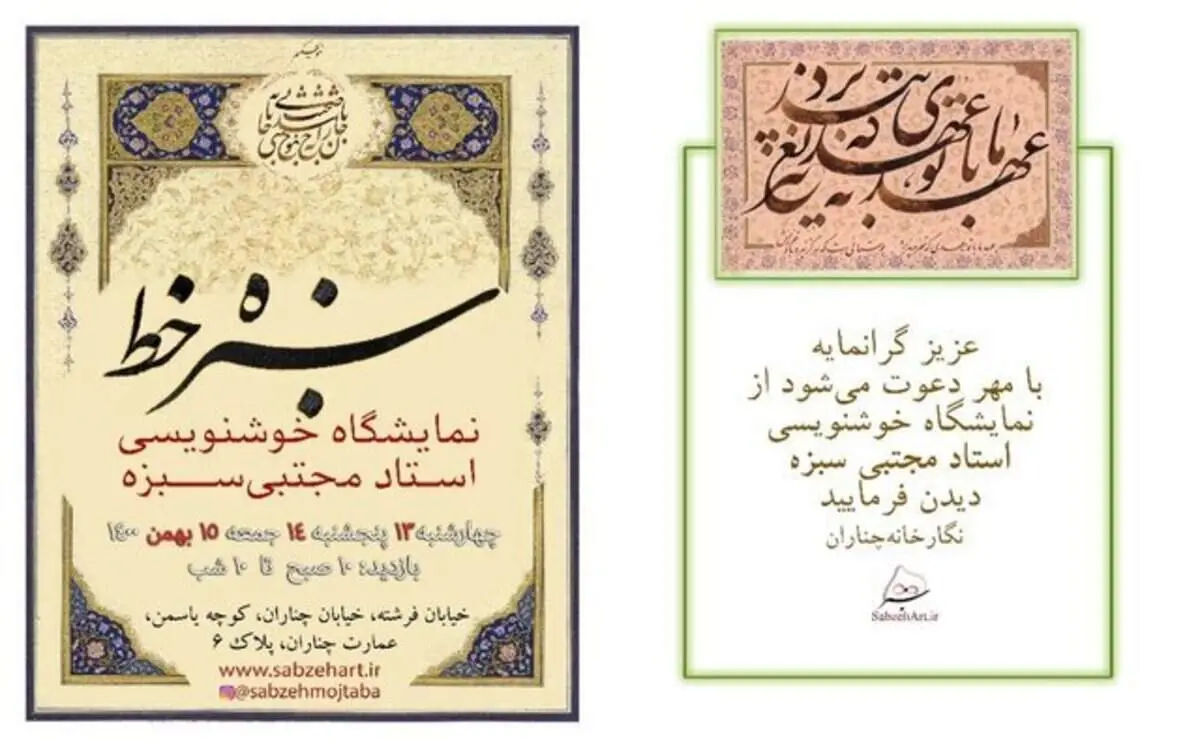 سبزه خط
نمایشگاه خوشنویسی
استاد مجتبی سبزه
چهارشنبه ۱۳ پنجشنبه ۱۴ جمعه ۱۵ بهمن ۱۴۰۰
بازدید: ۱۰ صبح تا ۱۰ شب
خیابان فرشته، خیابان چناران، کوچه یاسمن،
عمارت چناران، پلاک ۶
www.sabzehart.ir
@sabzehmojtaba
عهد ما با
عزیز گرانمایه
با مهر دعوت می‌شود از
نمایشگاه خوشنویسی
استاد مجتبی سبزه
دیدن فرمایید
نگارخانه چناران
SabzehArt.ir